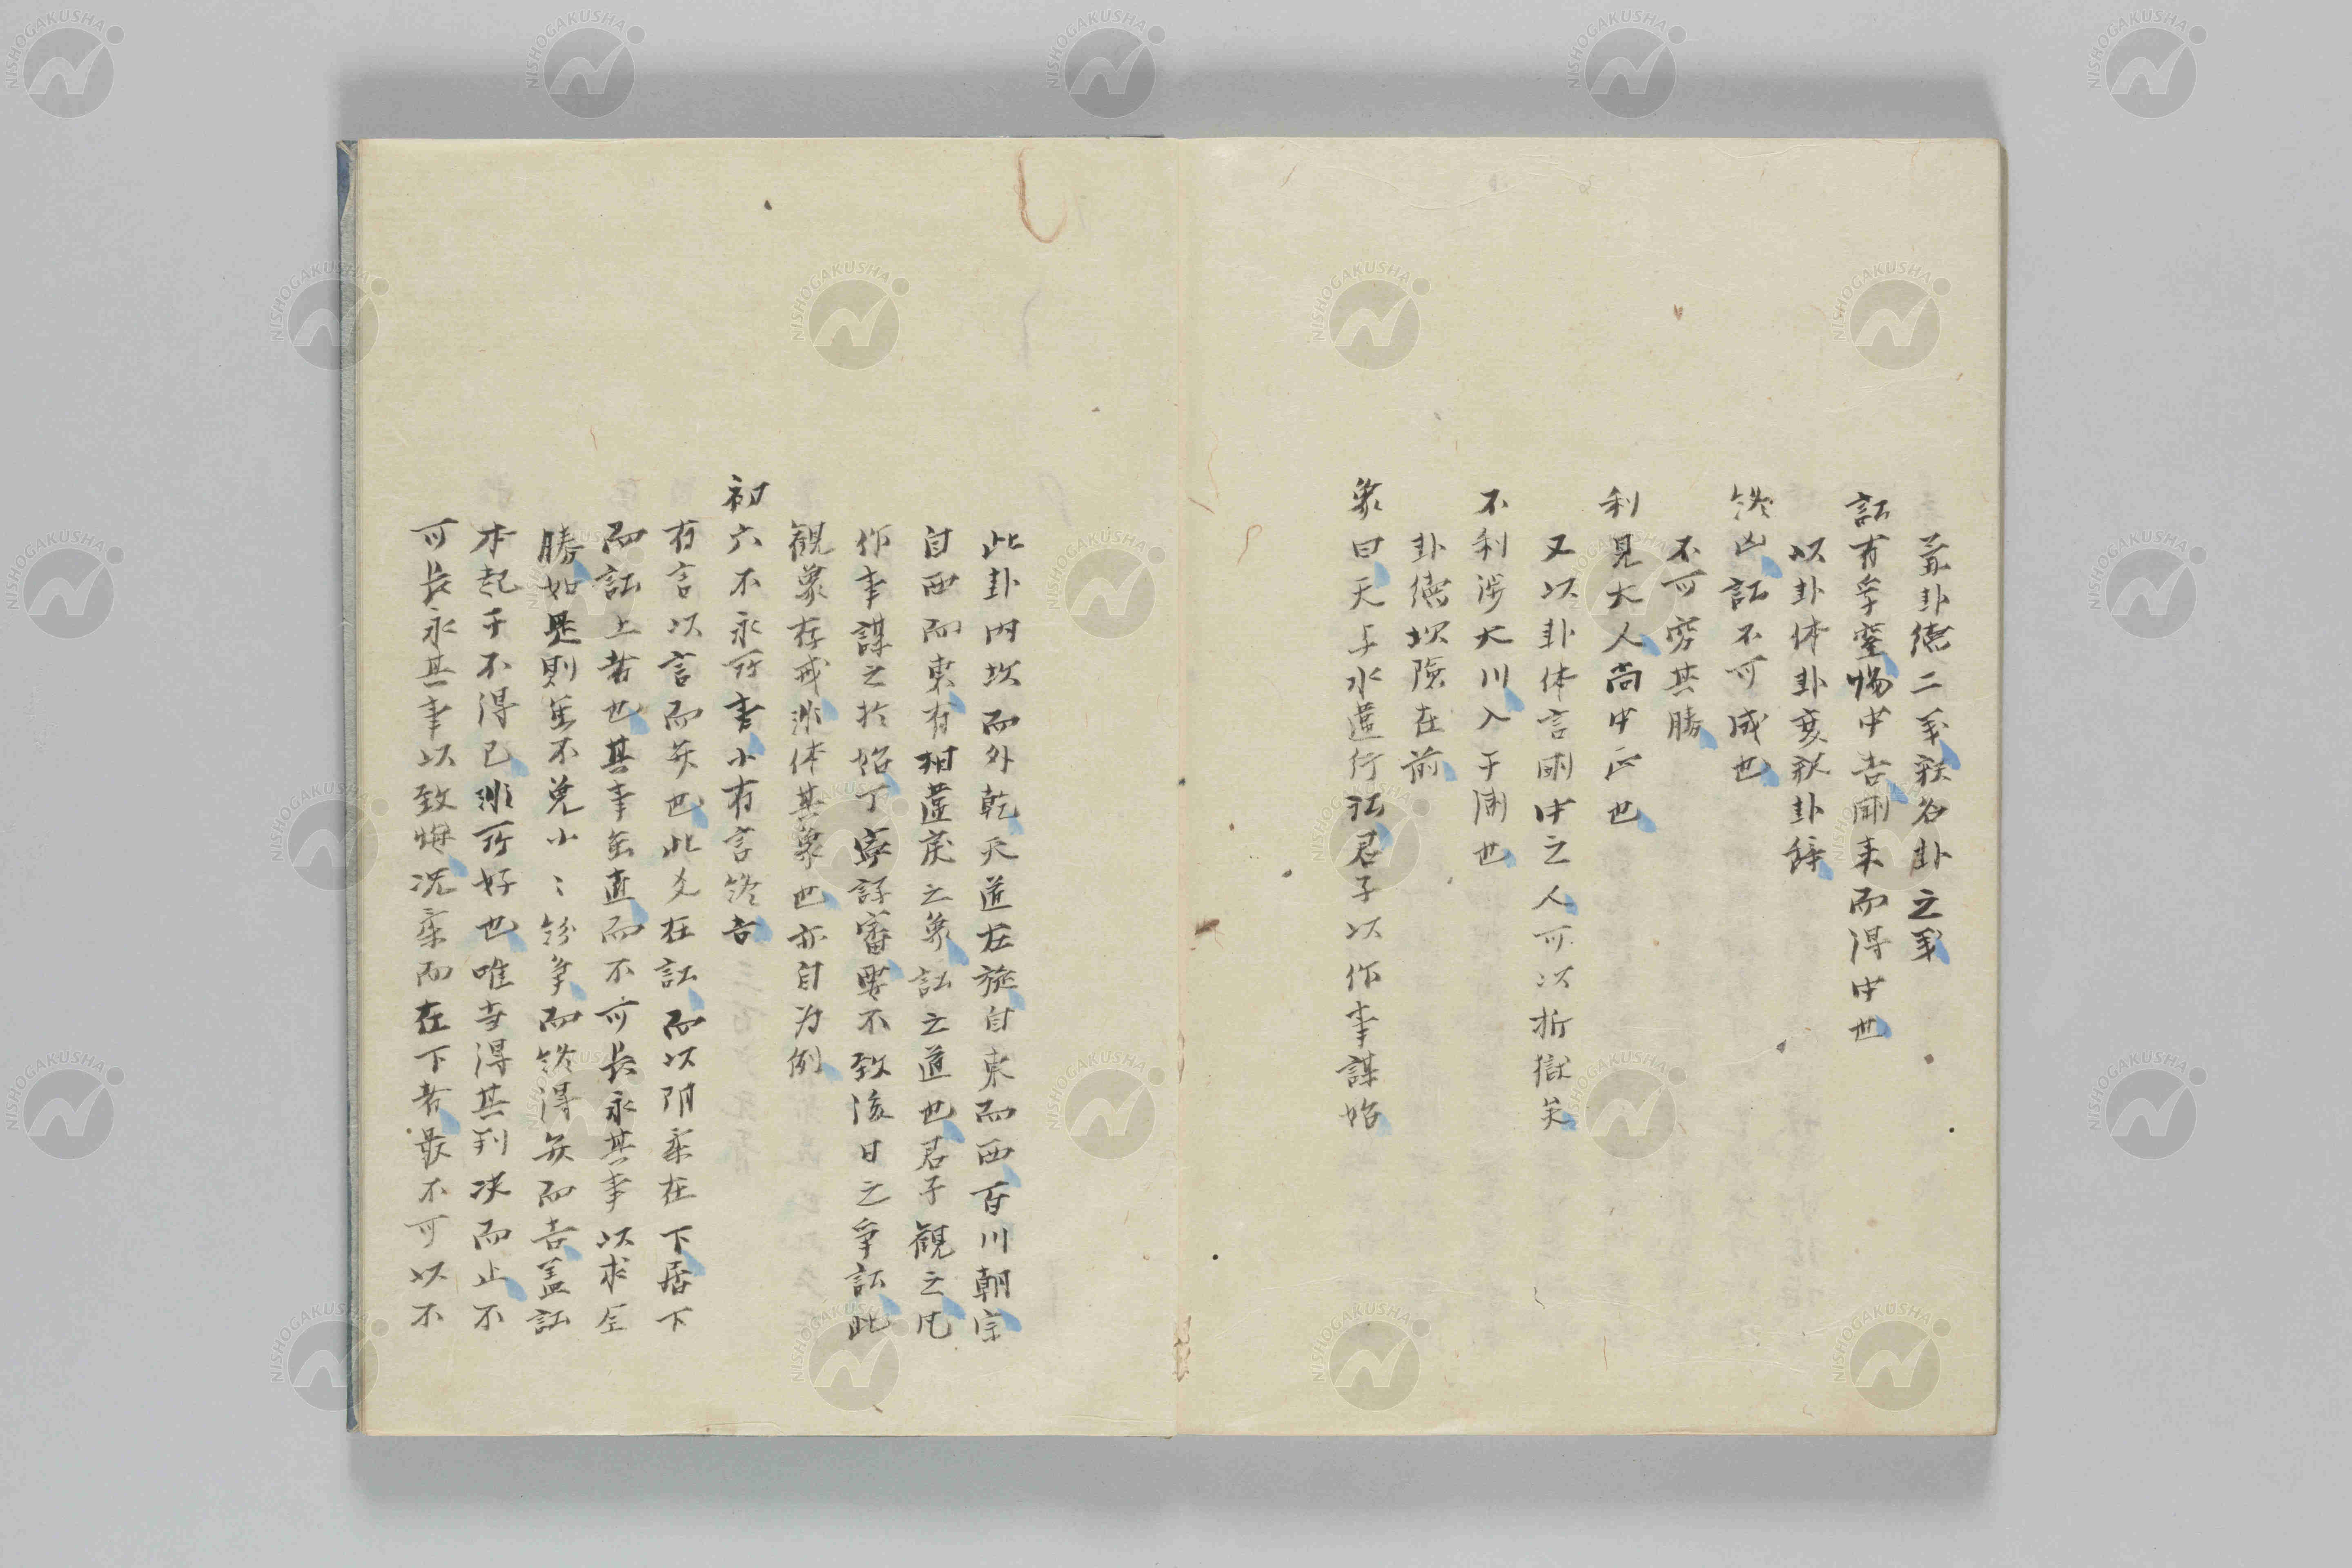 蓋卦徳二義釈名卦之義
訟有孚窒惕中吉剛来而得中也
以卦体卦変釈卦辞
終凶訟不可成也
不可窮其勝
利見大人尚中正也
又以卦体言剛中之人可以折獄矣
不利渉大川入于淵也
卦徳坎険在前
象曰天与水違行訟君子以作事謀始
此卦内坎而外乾天道左旋自東而西百川朝宗
自西而東有相違戻之象訟之道也君子観之凡
作事謀之於始丁寧詳審要不致後日之争訟此
観象存戒非体其象也亦自為例
初六不永所事小有言終吉
有言以言而弁也此爻在訟而以阴柔在下居下
而訟上者也其事雖直而不可長永其事以求全
勝如是則雖不免小〻紛争而終得弁而吉盖訟
本起于不得已非所好也唯幸得其判决而止不
可長永其事以致悔况柔而在下者最不可以不
NISHOGAKUSHA